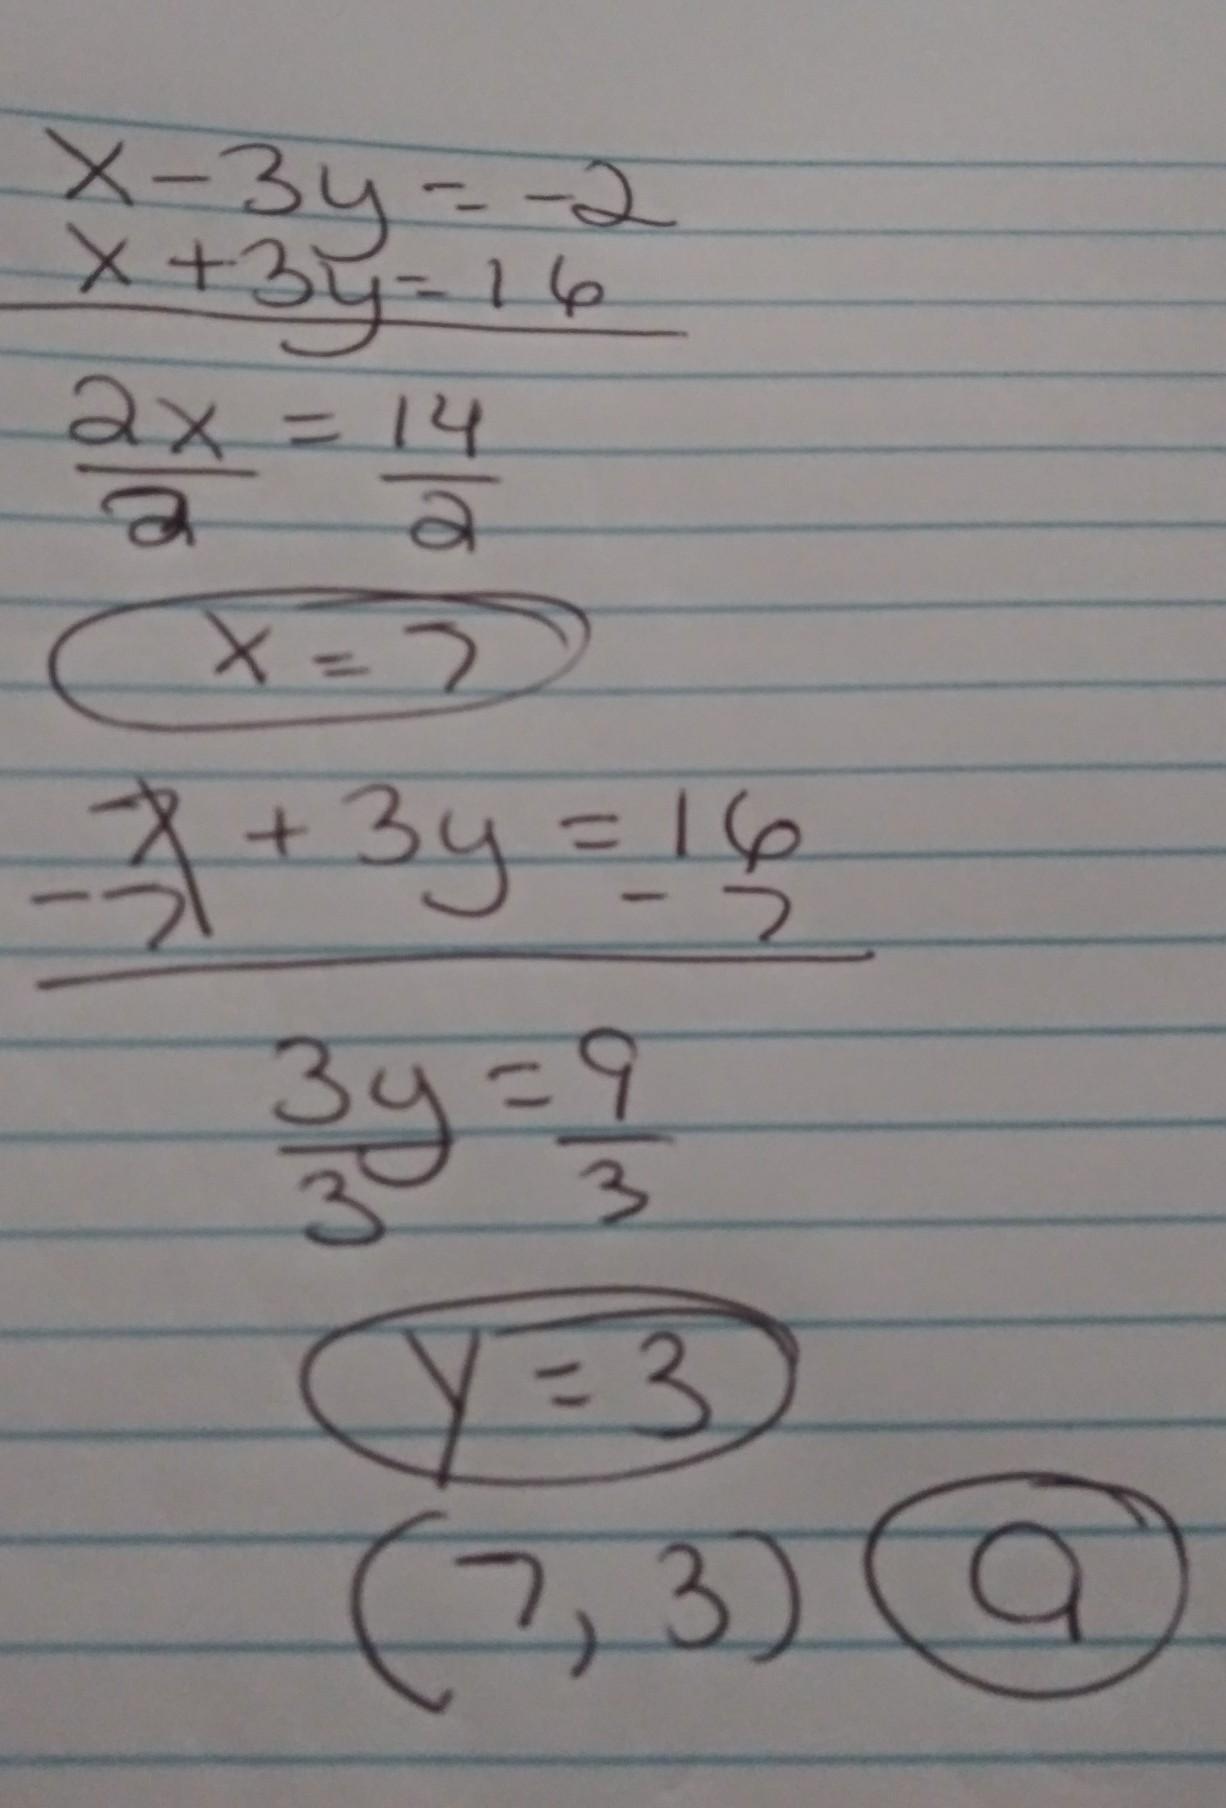 x - 3y = -2
x + 3y = 16
2x = 14
2 2
x = 7
7 + 3y = 16
-7 - 7
3y = 9
3 3
y = 3
(7, 3) a